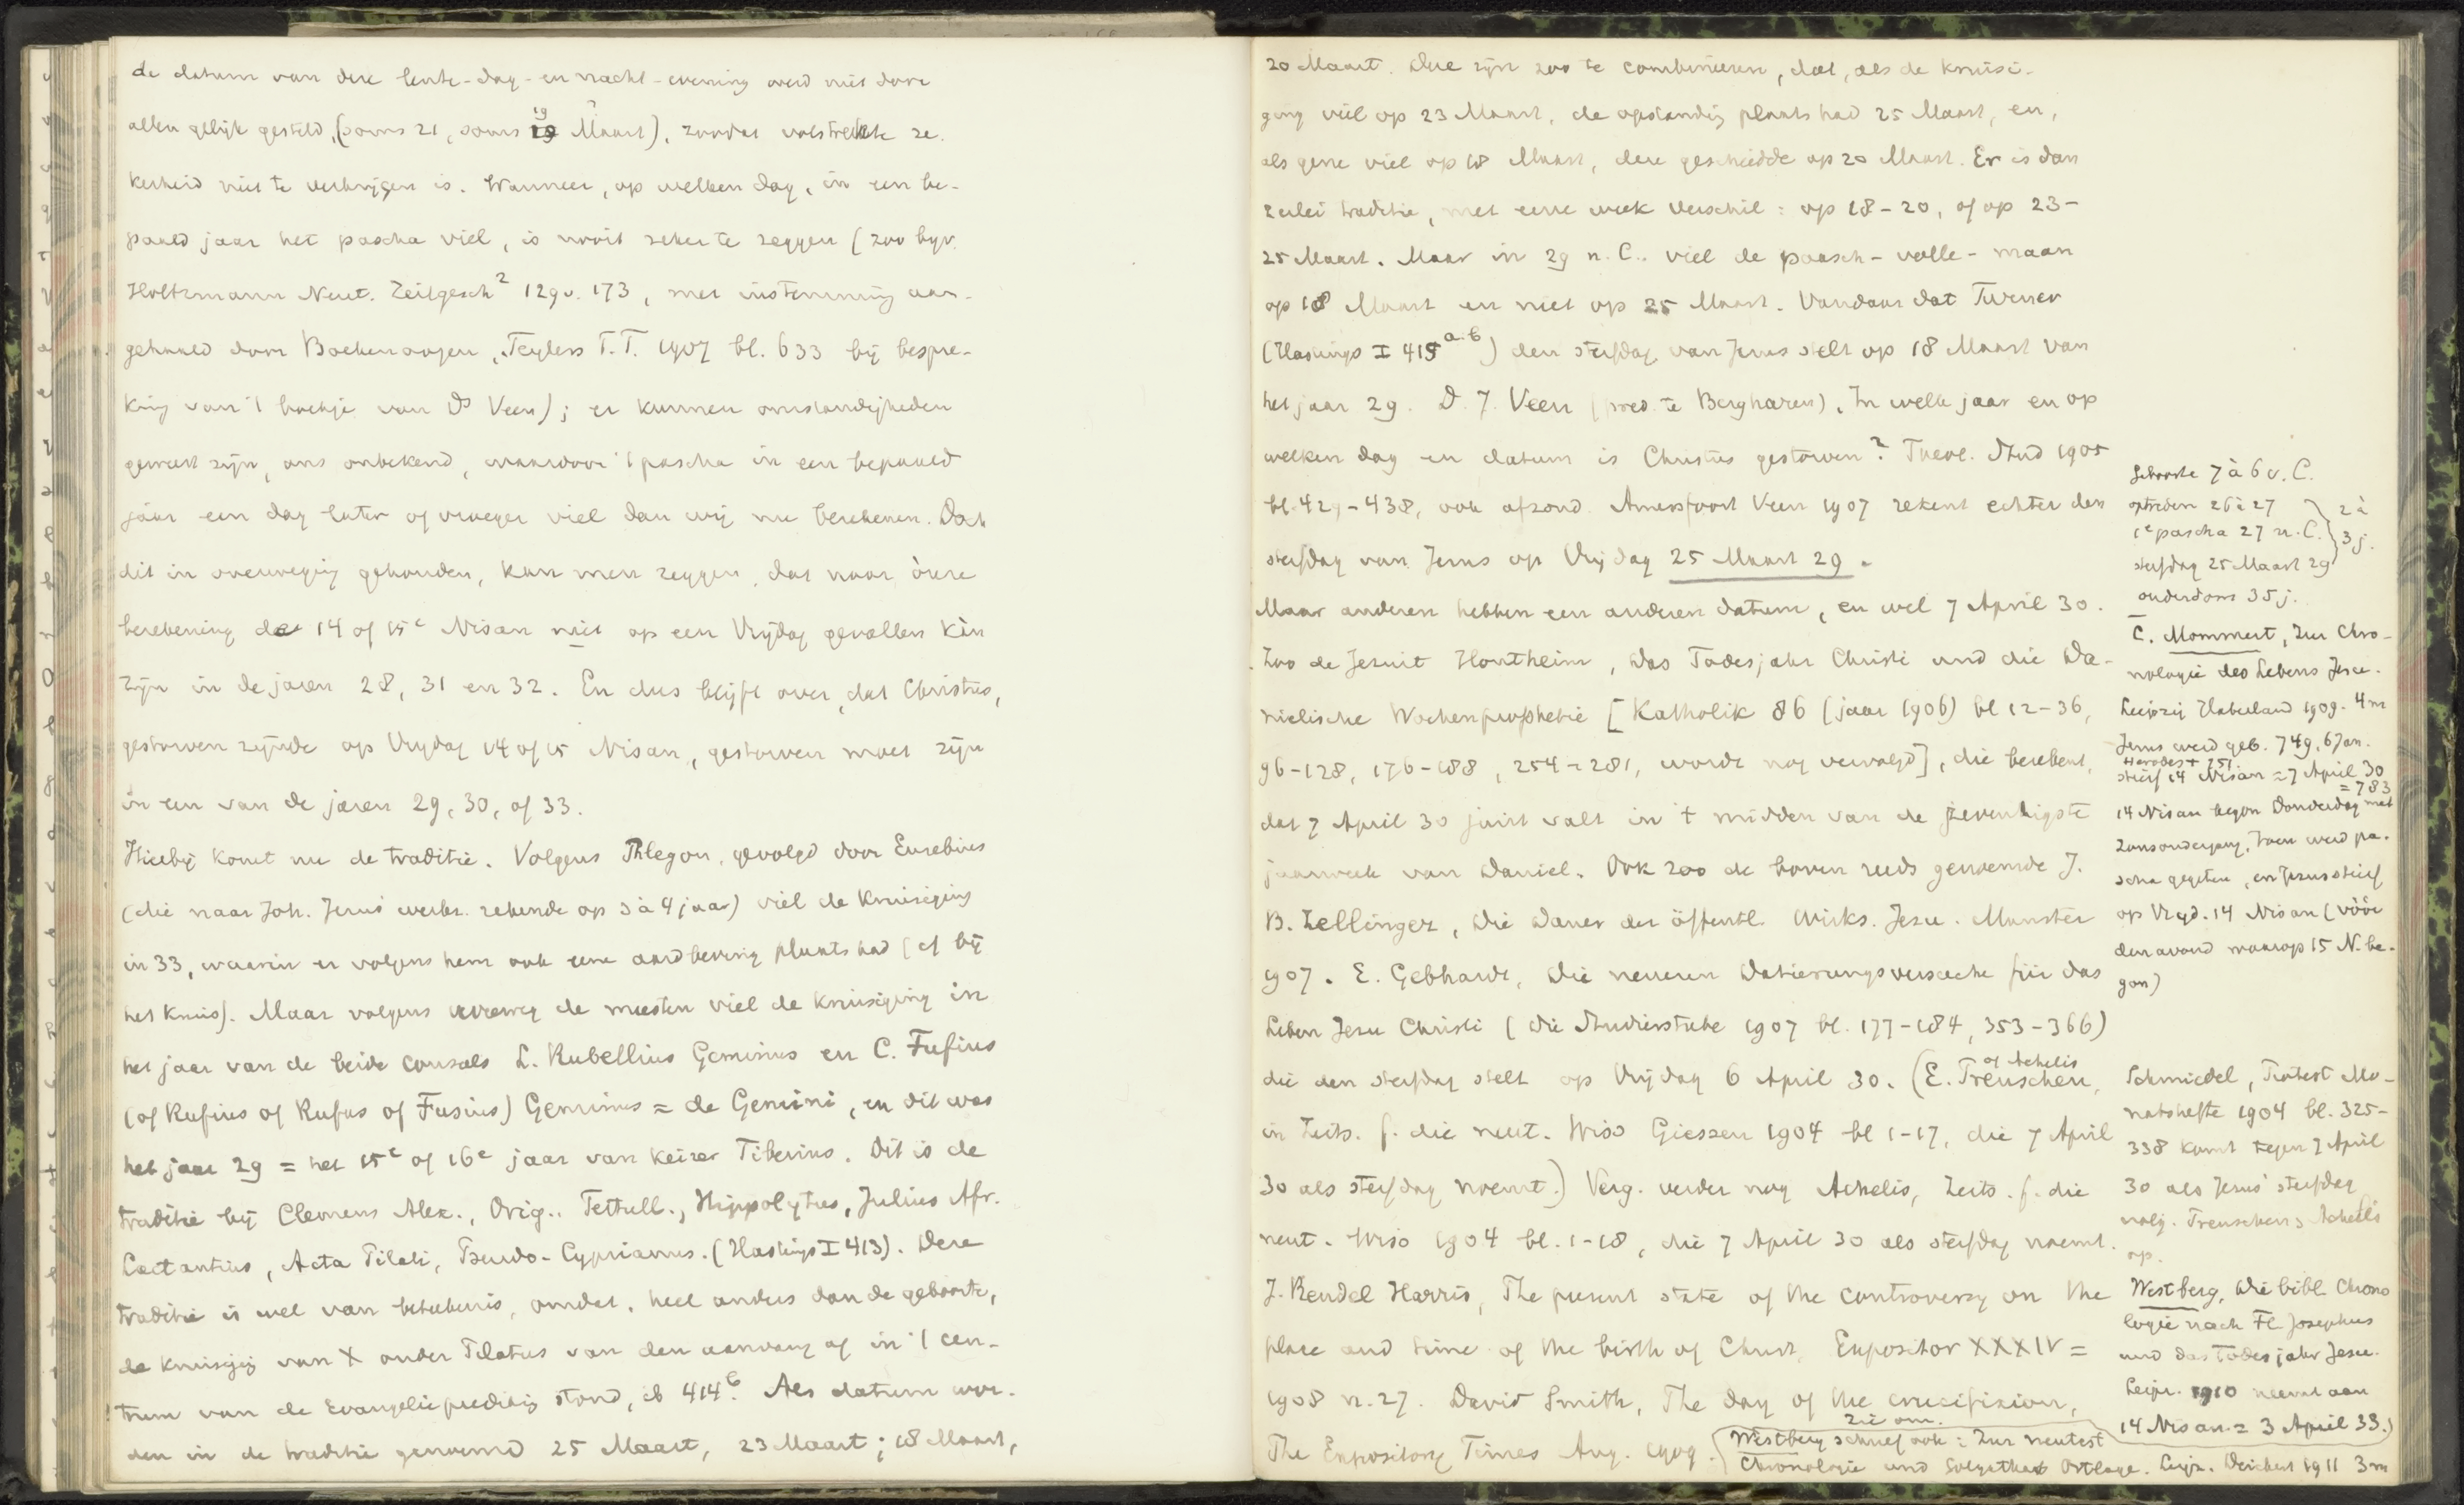 de datum van deze lente-dag-en nacht-evening werd niet door
allen gelijk gesteld, (soms 21, soms 19 Maart), zoodat volstrekte ze-
kerheid niet te verkrijgen is. Wanneer, op welken dag, in een be-
paald jaar het pascha viel, is nooit zeker te zeggen (zoo bijv.
Holtzmann Neut. Zeitgesch² 129v. 173, met instemming aan-
gehaald door Boekenoogen, Teylers T.T. 1907 bl. 633 bij bespre-
king van 't boekje van Ds Veen); er kunnen omstandigheden
geweest zijn, ons onbekend, waardoor 't pascha in een bepaald
jaar een dag later of vroeger viel dan wij nu berekenen. Doch
dit in overweging gehouden, kan men zeggen, dat naar ònze
berekening de 14 of 15e Nisan niet op een Vrijdag gevallen kàn
zijn in de jaren 28, 31 en 32. En dus blijft over, dat Christus,
gestorven zijnde op Vrijdag 14 of 15 Nisan, gestorven moet zijn
in een van de jaren 29, 30, of 33.
Hierbij komt nu de traditie. Volgens Phlegon, gevolgd door Eusebius
(die naar Joh. Jezus' werkz. rekende op 3 à 4 jaar) viel de kruisiging
in 33, waarin er volgens hem ook eene aardbeving plaats had (cf bij
het kruis). Maar volgens verreweg de meesten viel de kruisiging in
het jaar van de beide consuls L. Rubellius Geminus en C. Fufius
(of Rufius of Rufus of Fusius) Geminus = de Gemini, en dit was
het jaar 29 = het 15e of 16e jaar van keizer Tiberius. Dit is de
traditie bij Clemens Alex., Orig., Tertull., Hippolytus, Julius Afr.
Lactantius, Acta Pilati, Pseudo-Cyprianus. (Hastings I 413). Deze
traditie is wel van beteekenis, omdat, heel anders dan de geboorte,
de kruisiging van X onder Pilatus van den aanvang af in 't cen-
trum van de Evangelieprediking stond, ib 414b. Als datum wor-
den in de traditie genoemd 25 Maart, 23 Maart; 18 Maart,
20 Maart. Deze zijn zoo te combineeren, dat, als de kruisi-
ging viel op 23 Maart, de opstanding plaats had 25 Maart, en,
als gene viel op 18 Maart, deze geschiedde op 20 Maart. Er is dan
2erlei traditie, met eene week verschil: op 18-20, of op 23-
25 Maart. Maar in 29 n. C. viel de paasch-volle-maan
op 18 Maart en niet op 25 Maart. Vandaar dat Turner
(Hastings I 415 a.b) den sterfdag van Jezus stelt op 18 Maart van
het jaar 29. D. J. Veen (pred. te Bergharen), In welk jaar en op
welken dag en datum is Christus gestorven? Theol. Stud 1905
bl. 429-438, ook afzond. Amersfoort Veen 1907 rekent echter den
sterfdag van Jezus op Vrijdag 25 Maart 29.
Maar anderen hebben een anderen datum, en wel 7 April 30.
Zoo de Jezuit Hontheim, Das Todesjahr Christi und die Da-
nielische Wochenprophetie [Katholik 86 (jaar 1906) bl 12-36,
96-128, 176-188, 254-281, wordt nog vervolgd], die berekent,
dat 7 April 30 juist valt in 't midden van de zeventigste
jaarweek van Daniel. Ook zoo de boven reeds genoemde J.
B. Zellinger, Die Dauer der öffentl. Wirks. Jesu. Munster
1907. E. Gebhardt, Die neueren Datierungsversuche für das
Leben Jesu Christi (Die Studierstube 1907 bl. 177-184, 353-366)
die den sterfdag stelt op Vrijdag 6 April 30. (E. Preuschen, of Achelis
in Zeits. f. die neut. Wiss Giessen 1904 bl 1-17, die 7 April
30 als sterfdag noemt.) Verg. verder nog Achelis, Zeits. f. die
neut. Wiss 1904 bl. 1-18, die 7 April 30 als sterfdag noemt.
J. Rendel Harris, The present state of the controversy on the
place and time of the birth of Christ, Expositor XXXIV =
1908 n. 27. David Smith, The day of the crucifixion,
The Expository Times Aug. 1909.
Geboorte 7 à 6 v. C.
optreden 26 à 27
1e pascha 27 n. C.
2 à
3 j.
sterfdag 25 Maart 29
ouderdom 35 j.
C. Mommert, Zur Chro-
nologie des Lebens Jesu.
Leipzig Haberland 1909. 4 m
Jezus werd geb. 749, 6 Jan.
Herodes † 751
stierf 14 Nisan = 7 April 30
= 783
14 Nisan begon Donderdag met
Zonsondergang, toen werd pa-
scha gegeten, en Jezus stierf
op Vrijd. 14 Nisan (vóór
den avond waarop 15 N. be-
gon)
Schmiedel, Protest Mo-
natshefte 1904 bl. 325-
338 komt tegen 7 April
30 als Jezus' sterfdag
volg. Preuschen, Achelis
op.
Westberg, Die bibl. Chrono
logie nach Fl. Josephus
und das Todesjahr Jesu.
Leipz. 1910 neemt aan
14 Nisan = 3 April 33.)
zie om.
Westberg schreef ook: Zur neutest
Chronologie und Golgathas Ortslage. Leipz. Deichert 1911 3 m